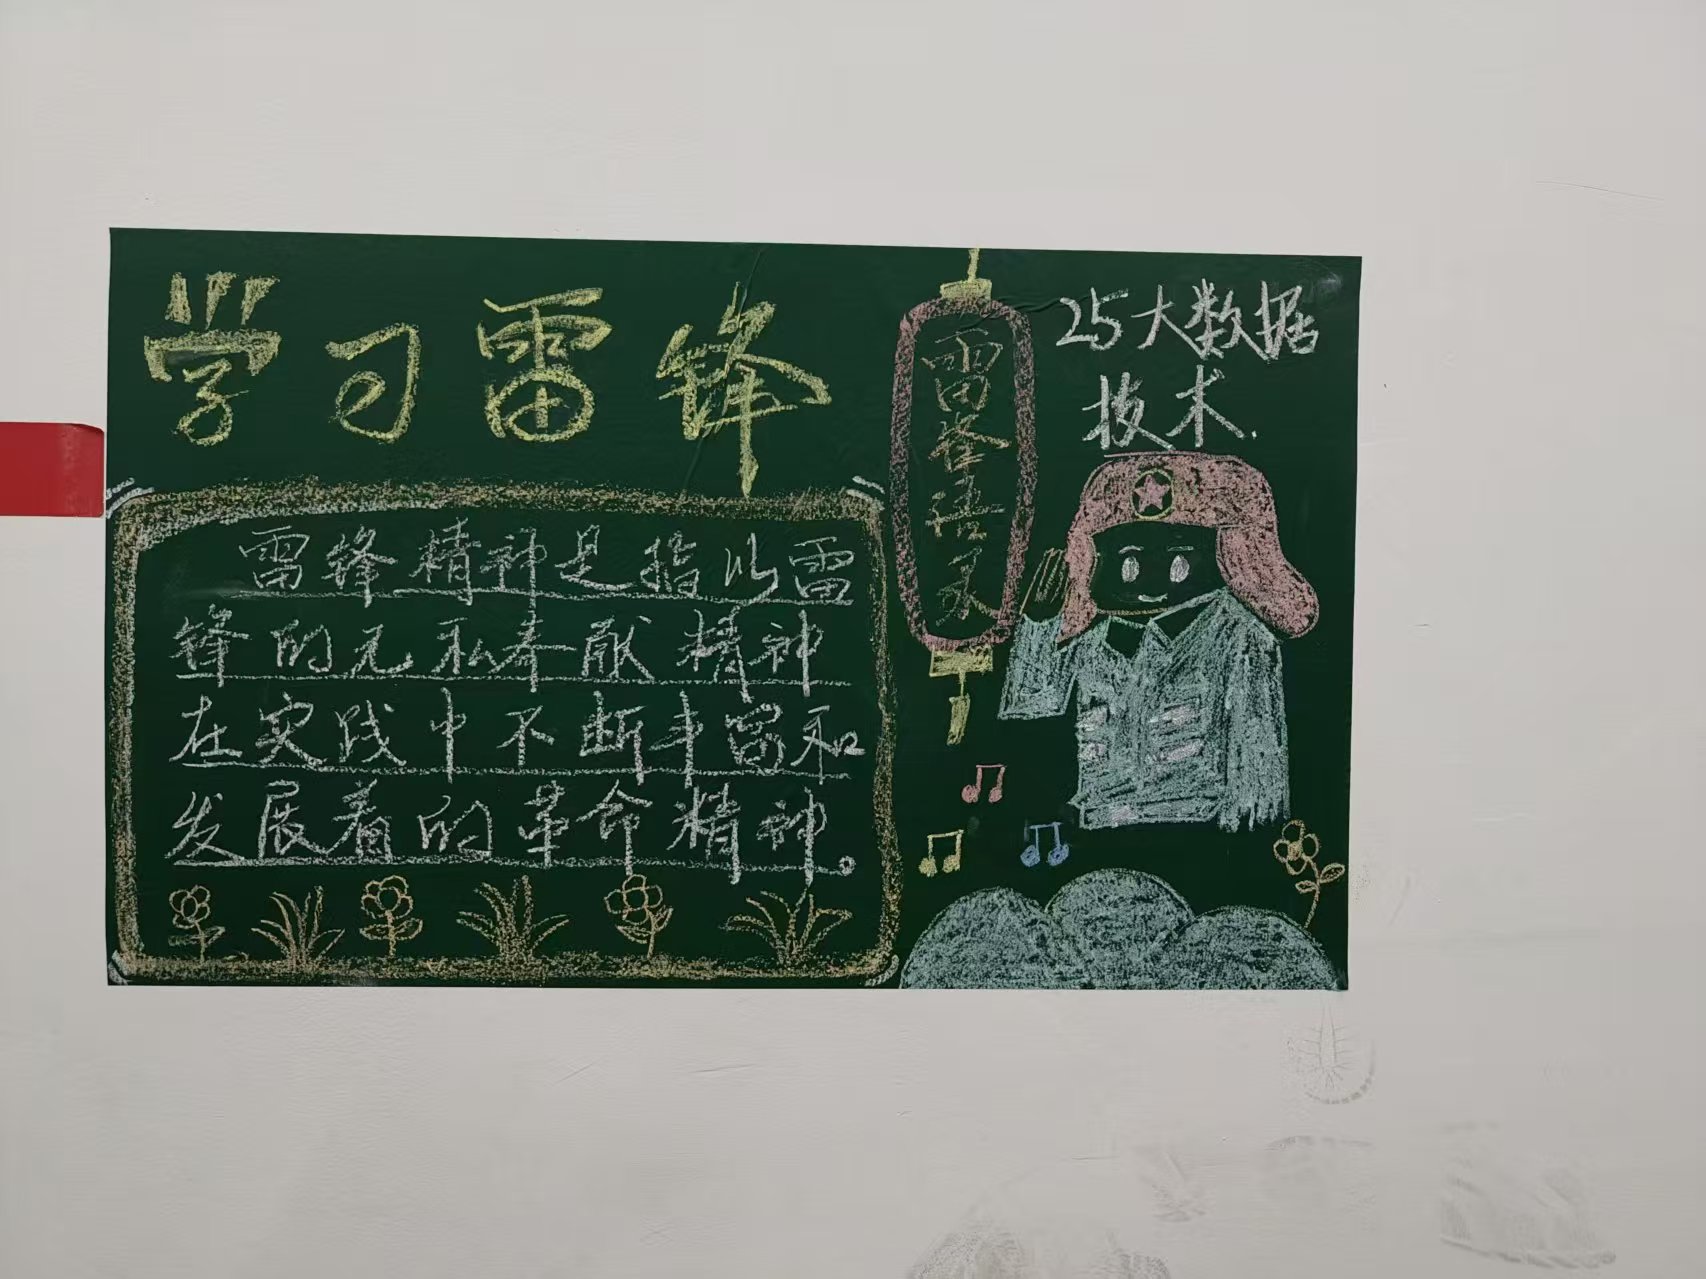 学习雷锋
雷锋精神是指以雷
锋的无私奉献精神
在实践中不断丰富和
发展着的革命精神。
雷锋语录
25大数据
技术.